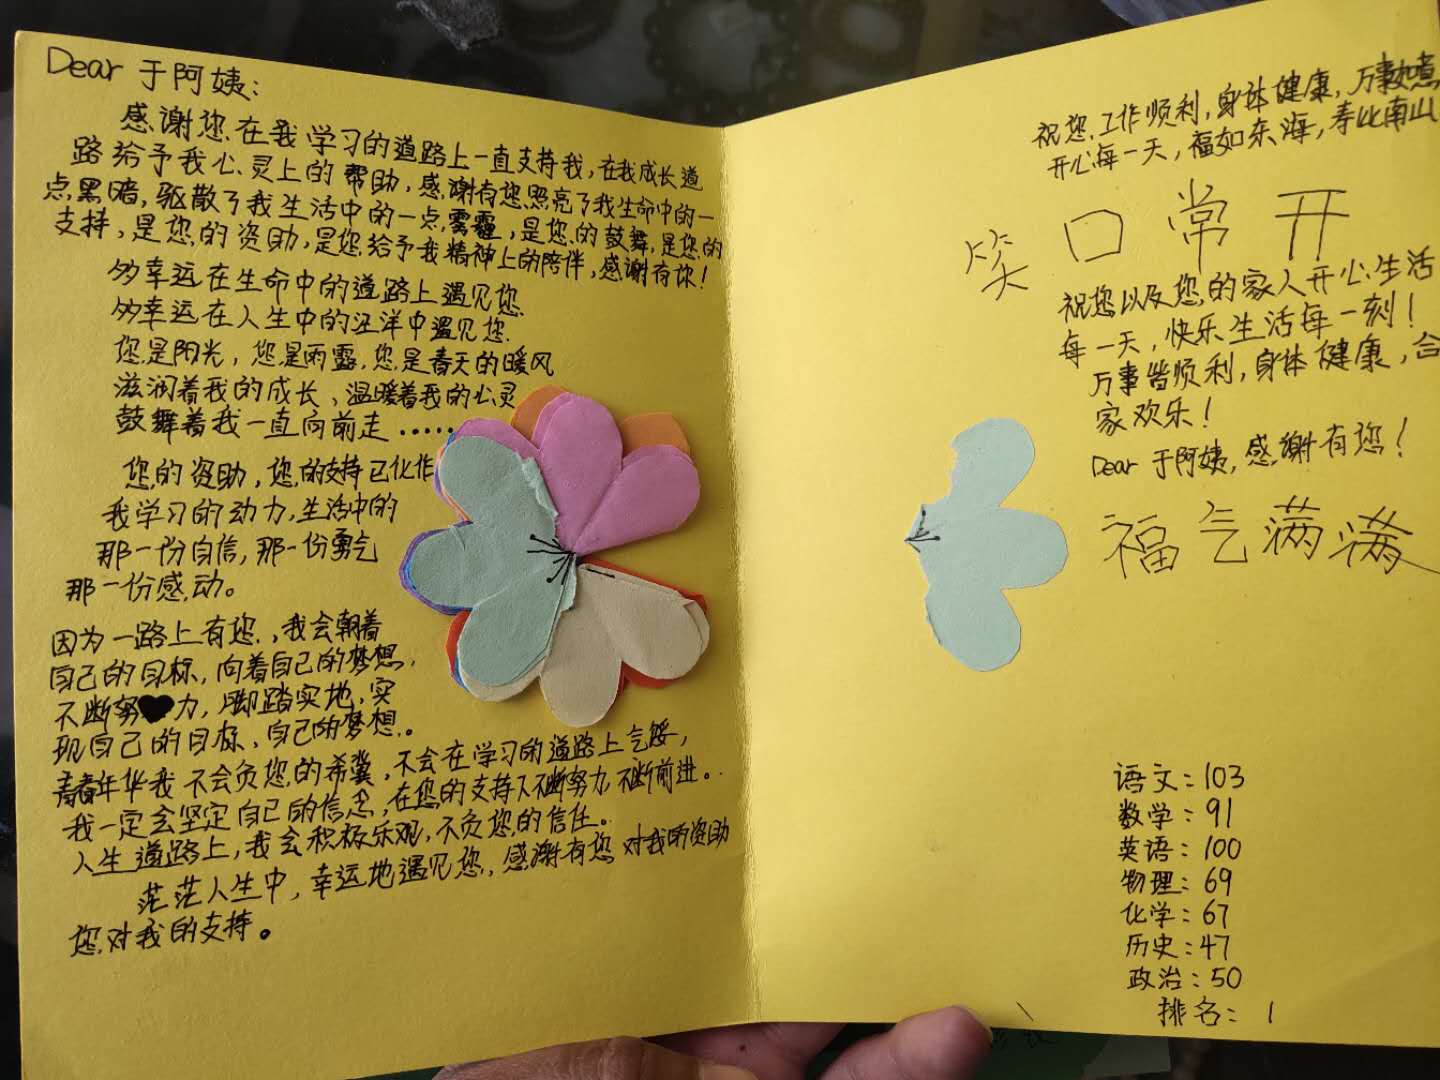 Dear 于阿姨:
感谢您在我学习的道路上一直支持我,在我成长道
路给予我心灵上的帮助,感谢有您照亮了我生命中的一
点黑暗,驱散了我生活中的一点雾霾,是您的鼓舞,是您的
支持,是您的资助,是您给予我精神上的陪伴,感谢有你!
多幸运在生命中的道路上遇见您
多幸运在人生中的汪洋中遇见您
您是阳光,您是雨露,您是春天的暖风
滋润着我的成长、温暖着我的心灵
鼓舞着我一直向前走……
您的资助,您的支持已化作
我学习的动力,生活中的
那一份自信,那一份勇气
那一份感动。
因为一路上有您,我会朝着
自己的目标,向着自己的梦想,
不断努力,脚踏实地,实
现自己的目标,自己的梦想。
青春年华我不会负您的希冀,不会在学习的道路上气馁,
我一定会坚定自己的信念,在您的支持下不断努力,不断前进。
人生道路上,我会积极乐观,不负您的信任。
茫茫人生中,幸运地遇见您,感谢有您对我的资助
您对我的支持。
祝您工作顺利,身体健康,万事如意,
开心每一天,福如东海,寿比南山
笑口常开
祝您以及您的家人开心生活
每一天,快乐生活每一刻!
万事皆顺利,身体健康,合
家欢乐!
Dear 于阿姨,感谢有您!
福气满满
语文:103
数学:91
英语:100
物理:69
化学:67
历史:47
政治:50
排名:1